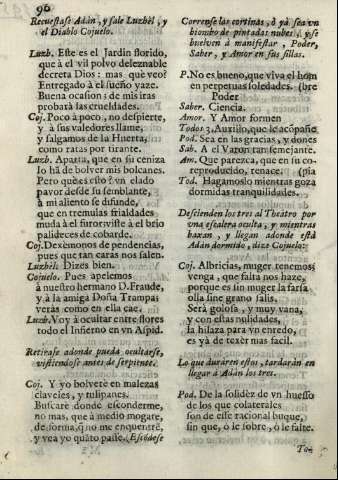 90
Recuestase Adàn, y sale Luzbèl, y
el Diablo Cojuelo.
Luzb. Este es el Jardin florido,
que à el vil polvo deleznable
decreta Dios: mas què veo?
Entregado à el sueño yaze.
Buena ocasion: de mis iras
probarà las crueldades.
Coj. Poco à poco, no despierte,
y à sus valedores llame,
y salgamos de la Huerta,
como ratas por tirante.
Luzb. Aparta, que en su ceniza
lo hà de bolver mis bolcanes.
Pero què es esto? un elado
pavor desde su semblante,
à mi aliento se difunde,
que en tremulas frialdades
muda à el furor
palideces de cobarde.
Coj. Dexèmonos de pendencias,
pues que tan caras nos salen.
Luzbèl. Dizes bien.
Cojuelo. Pues apelemos
à nuestro hermano D. Fraude,
y à la amiga Doña Trampa:
veràs como en ella cae.
Luzb. Voy à ocultar entre flores
todo el Infierno en vn Aspid.
Retirase adonde pueda ocultarse,
vistiendose antes de serpiente.
Coj. Y yo bolverè en malezas
claveles, y tulipanes.
Buscarè donde esconderme,
no mas, que à medio mogate,
de forma, q̃ no me encuentrẽ,
y vea yo quãto passe. Escõdese
Corrense las cortinas, ò yà sea vn
biombo de pintadas nubes, y se
buelven à manifestar, Poder,
Saber, y Amor en sus sillas.
P. No es bueno, que viva el hom
en perpetuas soledades. (bre
Poder
Saber. Ciencia.
Amor. Y Amor formen
Todos 3. Auxilio, que le acõpañe
Pod. Sea en las gracias, y dones
Sab. A el Varon tan semejante.
Am. Que parezca, que en su co-
reproducido, renace. (pia
Tod. Hagamoslo mientras goza
dormidas tranquilidades.
Descienden los tres al Theatro por
vna escalera oculta, y mientras
baxan, y llegan adonde està
Adàn dormido, dize Cojuelo:
Coj. Albricias, muger tenemos;
venga, que falta nos haze,
porque es sin muger la farsa
olla sine grano salis.
Serà golosa, y muy vana,
y con estas nulidades,
la hilaza para vn enredo,
es yà de texer mas facil.
Lo que duraren estos, tardaràn en
llegar à Adàn los tres.
Pod. De la solidèz de vn huesso
de los que colaterales
son de esse racional buque,
sin que, ò le sobre, ò le falte.
To-